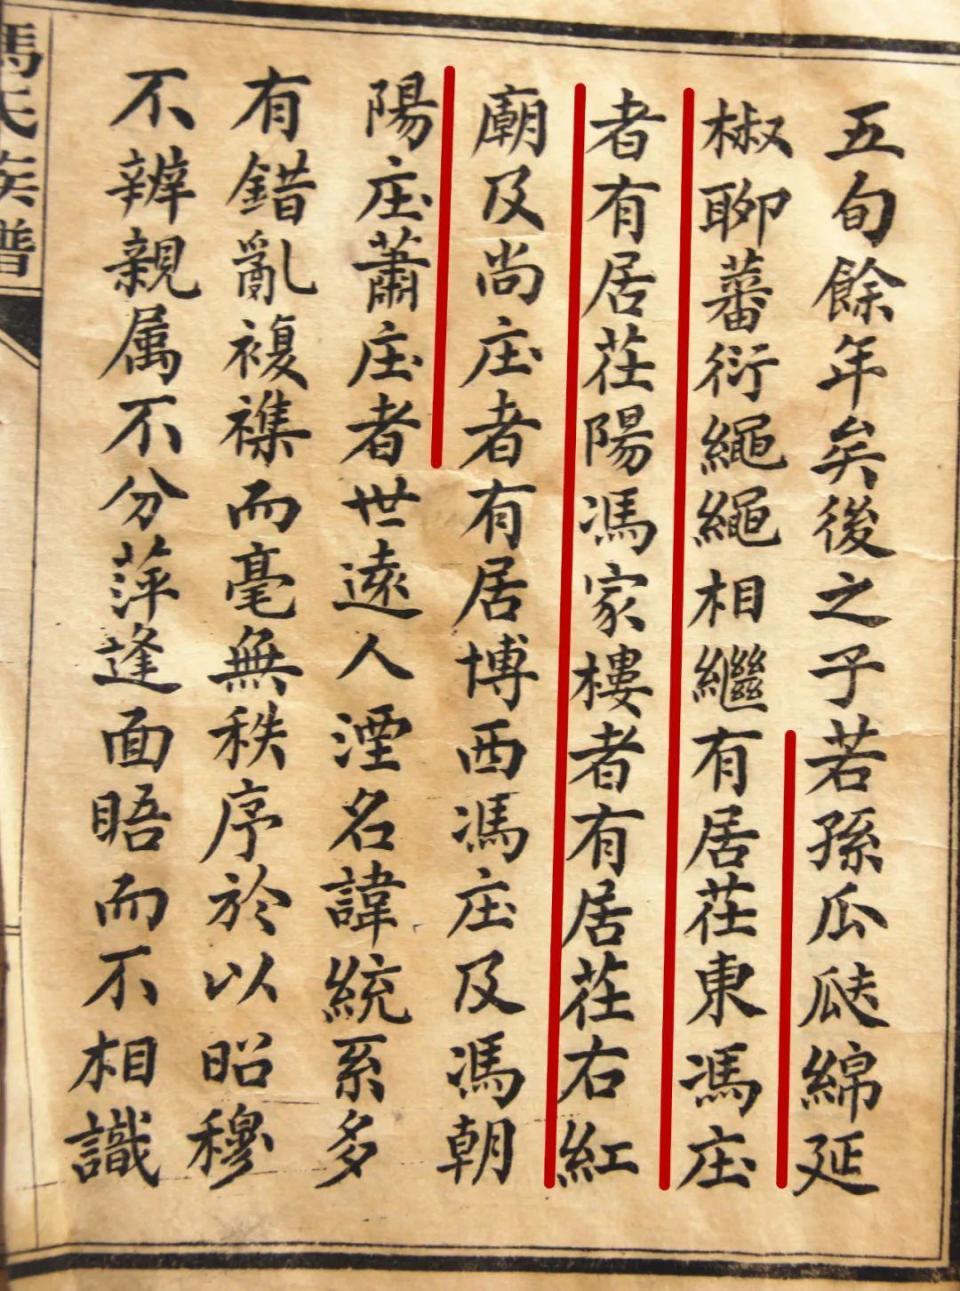 五旬餘年矣後之子若孫瓜瓞綿延
椒聊蕃衍繩繩相繼有居茌東馮庄
者有居茌陽馮家樓者有居茌右紅
廟及尚庄者有居博西馮庄及馮朝
陽庄蕭庄者世遠人湮名諱統系多
有錯亂複襍而毫無秩序於以昭穆
不辨親属不分萍逢面晤而不相識
馮氏族譜